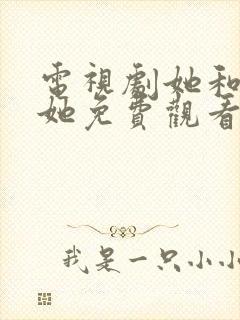 電視劇她和
她免費觀看
我是一只小小